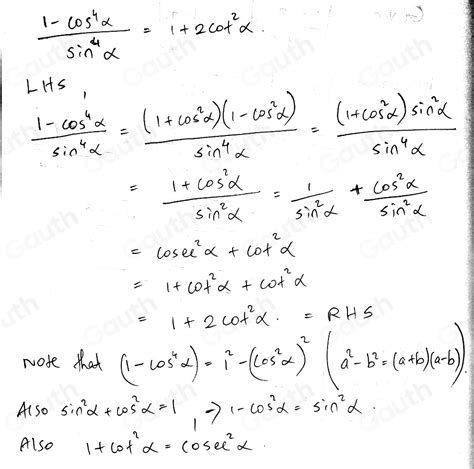 1 - cos⁴α / sin⁴α = 1 + 2cot²α .
LHS ,
1 - cos⁴α / sin⁴α = (1+cos²α)(1-cos²α) / sin⁴α = (1+cos²α) sin²α / sin⁴α
= 1+cos²α / sin²α = 1 / sin²α + cos²α / sin²α
= cosec²α + cot²α
= 1 + cot²α + cot²α
= 1 + 2cot²α . = RHS
Note that (1-cos⁴α) = 1² - (cos²α)² (a²-b² = (a+b)(a-b)).
Also sin²α + cos²α = 1 , → 1-cos²α = sin²α .
Also 1+cot²α = cosec²α .
Gauth